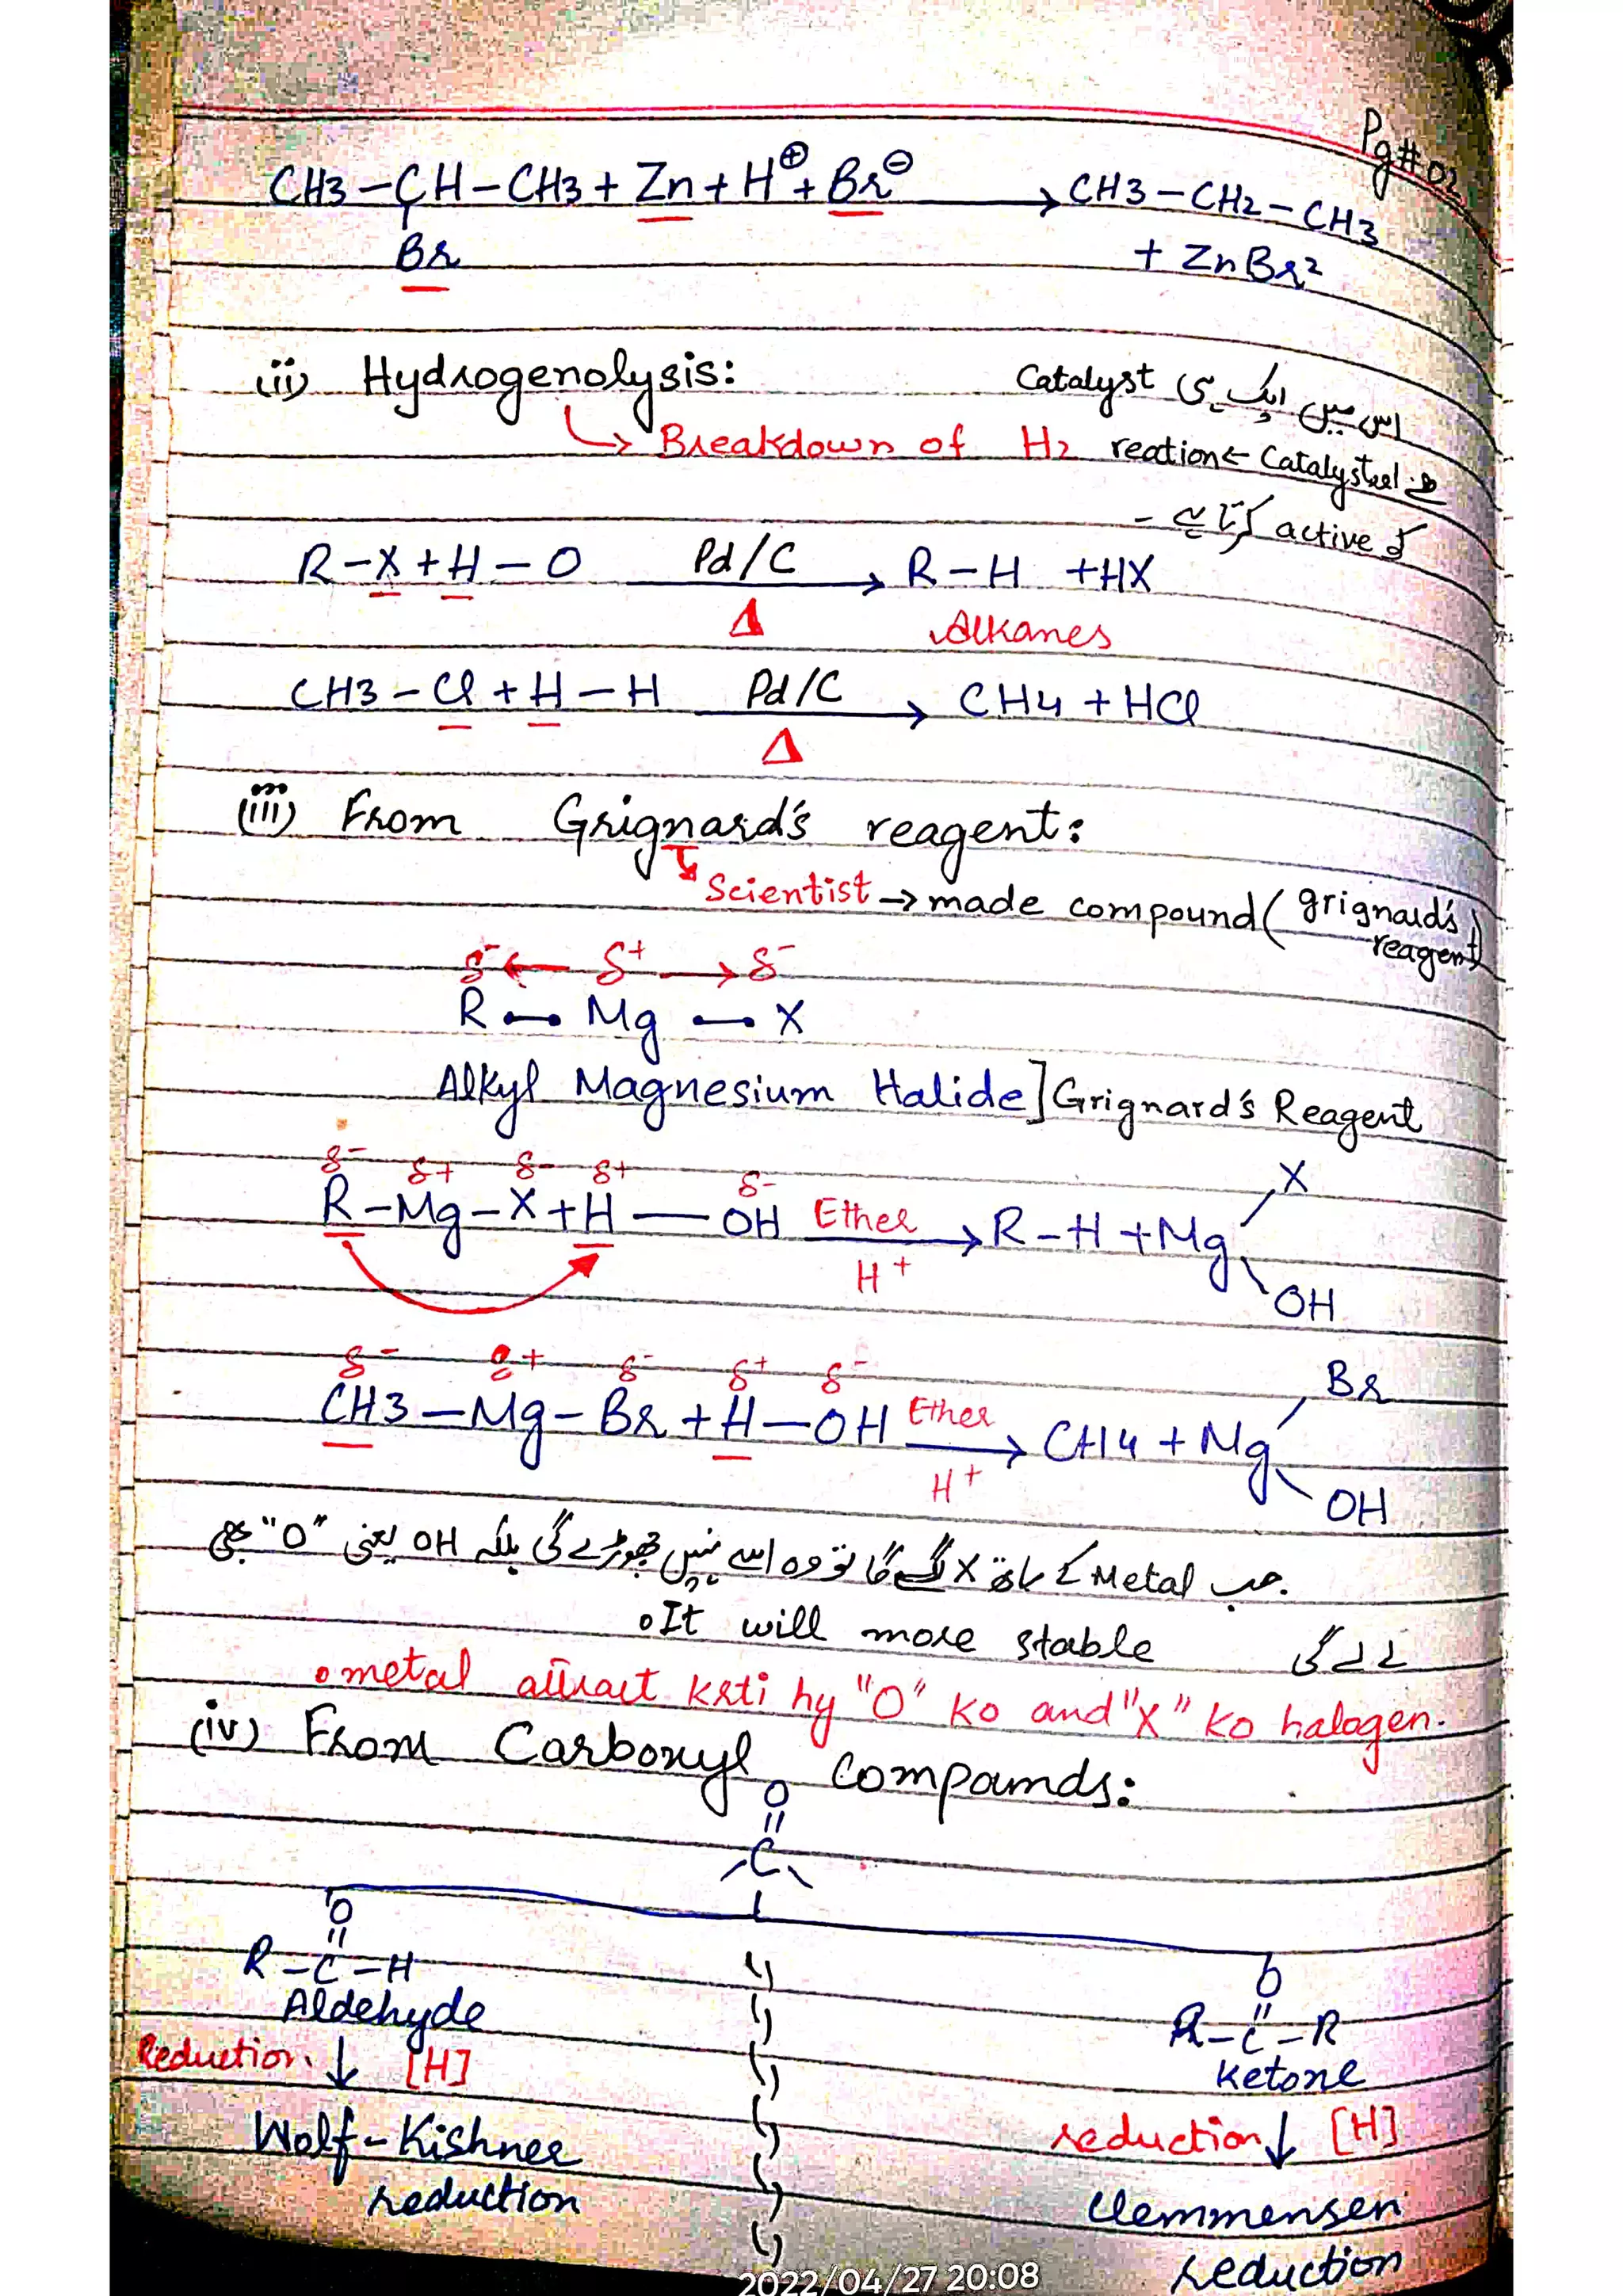 Pg#02
CH3-CH-CH3 + Zn + H⊕ + Br⊖ → CH3-CH2-CH3
Br
+ ZnBr2
(ii) Hydrogenolysis:
Catalyst
اس میں ایک ہی
→ Breakdown of H2
reaction ← Catalyst
کو active کرتا ہے -
R-X + H-O Pd/C → R-H + HX
Δ Alkanes
CH3-Cl + H-H Pd/C → CH4 + HCl
Δ
(iii) From Grignard's reagent:
Scientist → made compound (grignard's
reagent)
δ- ← δ+ → δ-
R - Mg - X
Alkyl Magnesium Halide] Grignard's Reagent
δ- δ+ δ- δ+ δ-
X
R-Mg-X + H-OH Ether → R-H + Mg
H+
OH
δ- δ+ δ- δ+ δ-
Br
CH3-Mg-Br + H-OH Ether → CH4 + Mg
H+
OH
جب Metal کے ساتھ X لگے گا تو وہ اسے نہیں چھوڑے گی بلکہ OH یعنی "O" بھی
لے لے گی
•It will more stable
•metal attract krti hy "O" ko and "X" ko halogen.
(iv) From Carbonyl Compounds:
O
||
C
O
||
R-C-H
Aldehyde
Reduction ↓ [H]
Wolf-Kishner
reduction
O
||
R-C-R
Ketone
reduction ↓ [H]
Clemmensen
reduction
2022/04/27 20:08